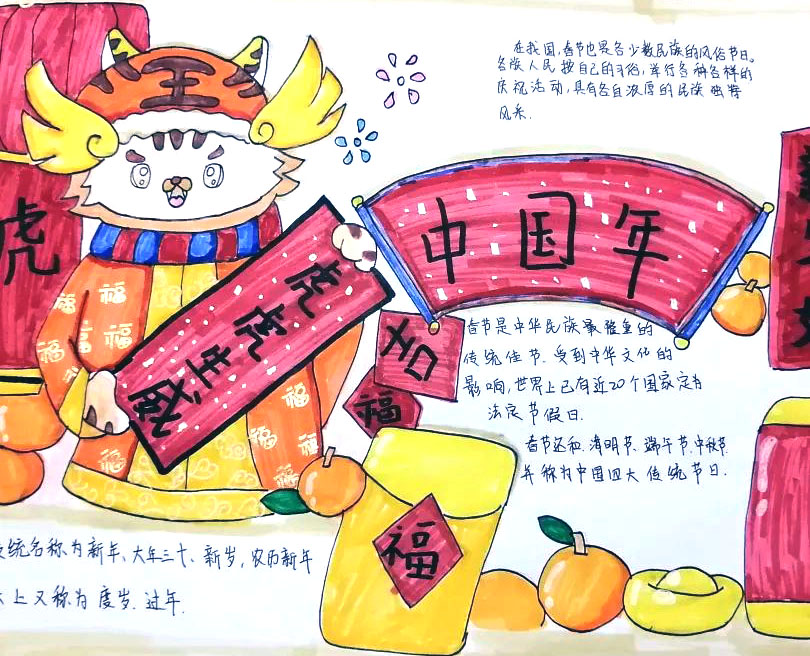 在我国,春节也是各少数民族的风俗节日。
各族人民按自己的习俗,举行各种各样的
庆祝活动,具有各自浓厚的民族独特
风采.
王
虎
中国年
虎虎生威
吉
福
福
福
福
福
福
福
福
福
福
春节是中华民族最隆重的
传统佳节.受到中华文化的
影响,世界上已有近20个国家定为
法定节假日.
春节还和.清明节、端午节.中秋节.
并称为中国四大传统节日.
统名称为新年、大年三十、新岁,农历新年
上又称为度岁.过年.